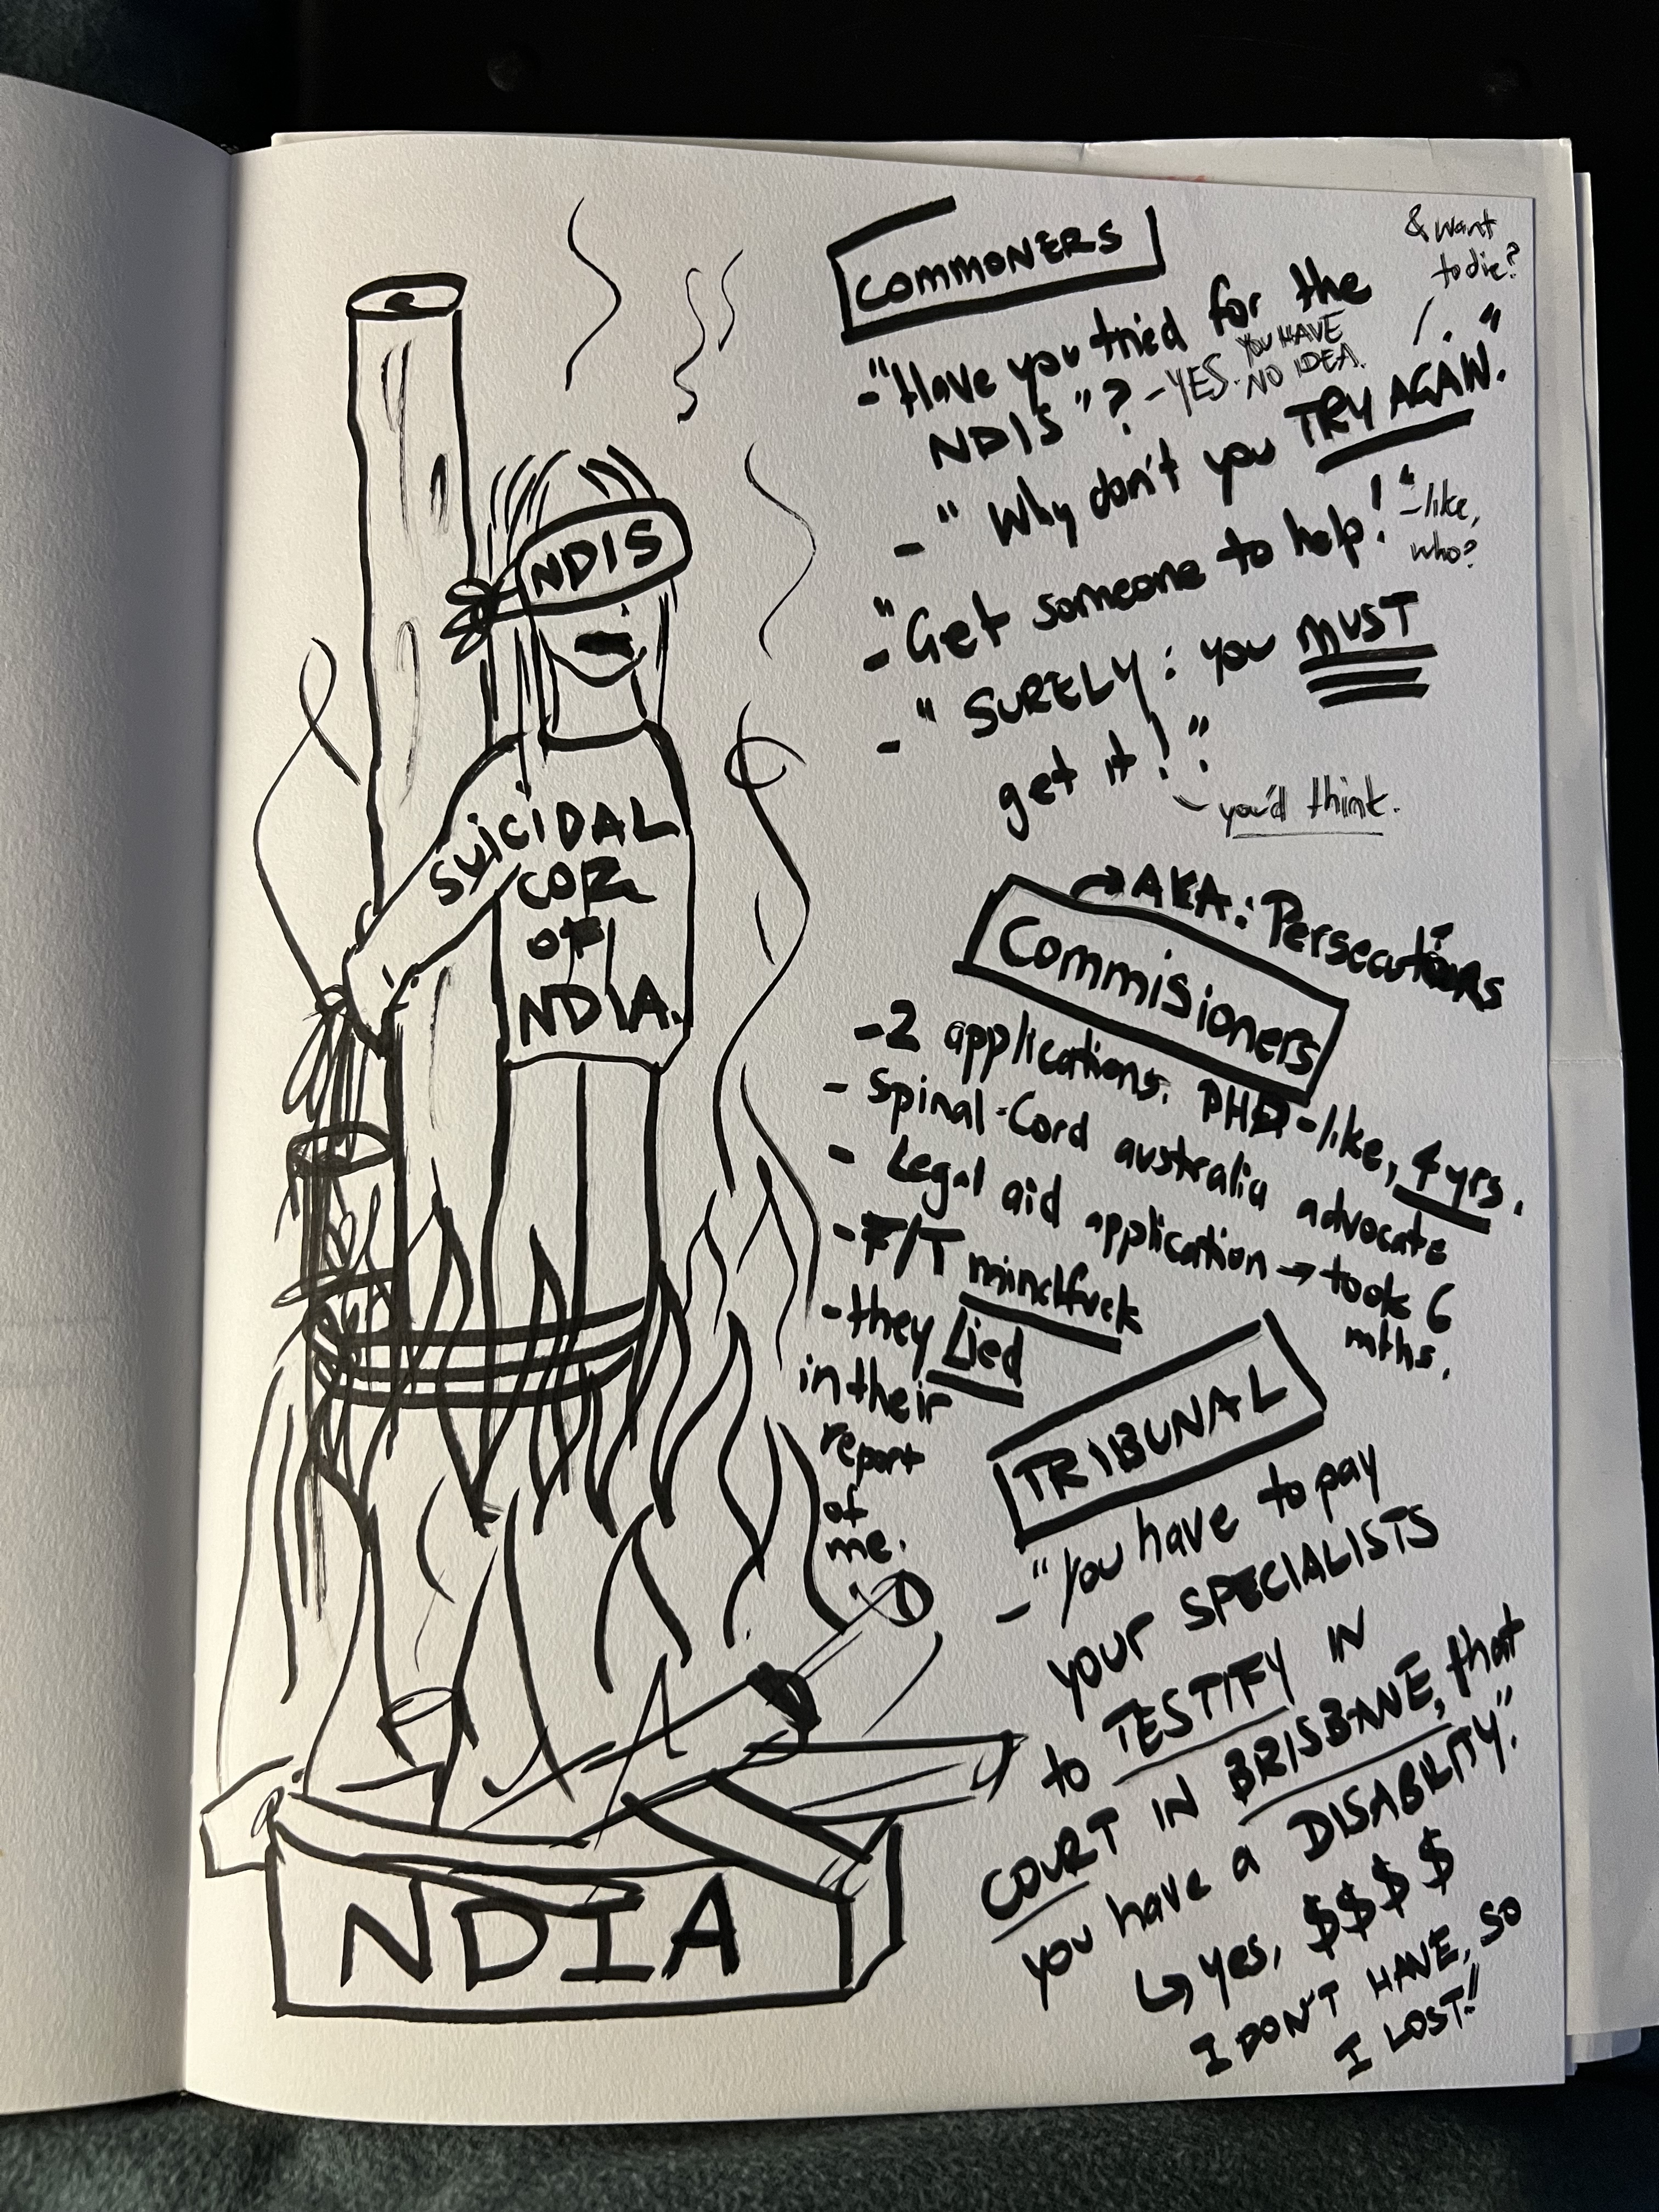 COMMONERS
& want
to die?
-"Have you tried for the
NDIS"? -YES. YOU HAVE
NO IDEA.
-" Why don't you TRY AGAIN."
-"Get someone to help!" -like,
who?
-" SURELY: you MUST
get it!"
- you'd think.
NDIS
SUiCIDAL
COZ
OF
NDIA.
→AKA: Persecutors
Commisioners
-2 applications. PHD-like, 4 yrs.
- Spinal-Cord australia advocate
- Legal aid application → took 6
mths.
-F/T mindfuck
-they Lied
in their
report
of
me.
TRIBUNAL
-"You have to pay
your SPECIALISTS
to TESTIFY IN
COURT IN BRISBANE, that
you have a DISABILITY."
↳ yes, $$$$
I DON'T HAVE, SO
I LOST!!
NDIA